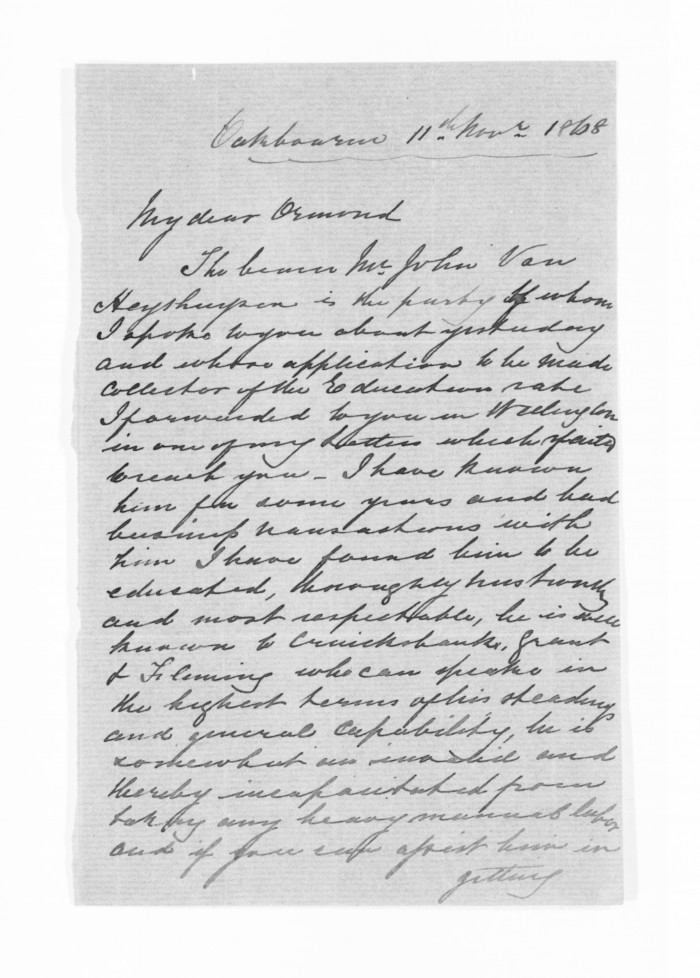 Oakbourne 11th Novr 1868
My dear Ormond
The bearer Mr John Van
Heythuysen is the party of whom
I spoke to you about yesterday
and whose application to be made
collector of the Education rate
I forwarded to you in Wellington
in one of my letters which failed
to reach you – I have known
him for some years and had
business transactions with
him I have found him to be
educated, thoroughly trustworthy
and most respectable, he is well
known to Cruickshank, Grant
& Fleming who can speak in
the highest terms of his steadiness
and general capability, he is
somewhat an invalid and
thereby incapacitated from
taking any heavy manual labor
and if you can assist him in
getting